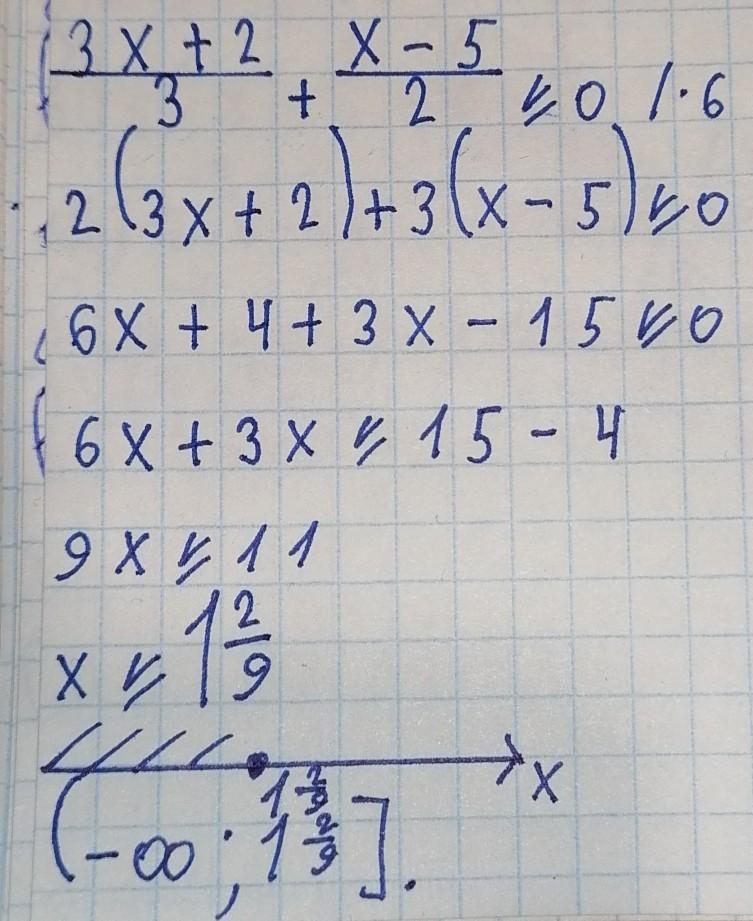 (3x + 2)/3 + (x - 5)/2 ≤ 0 / · 6
2(3x + 2) + 3(x - 5) ≤ 0
6x + 4 + 3x - 15 ≤ 0
6x + 3x ≤ 15 - 4
9x ≤ 11
x ≤ 1 2/9
1 2/9 x
(-∞; 1 2/9].